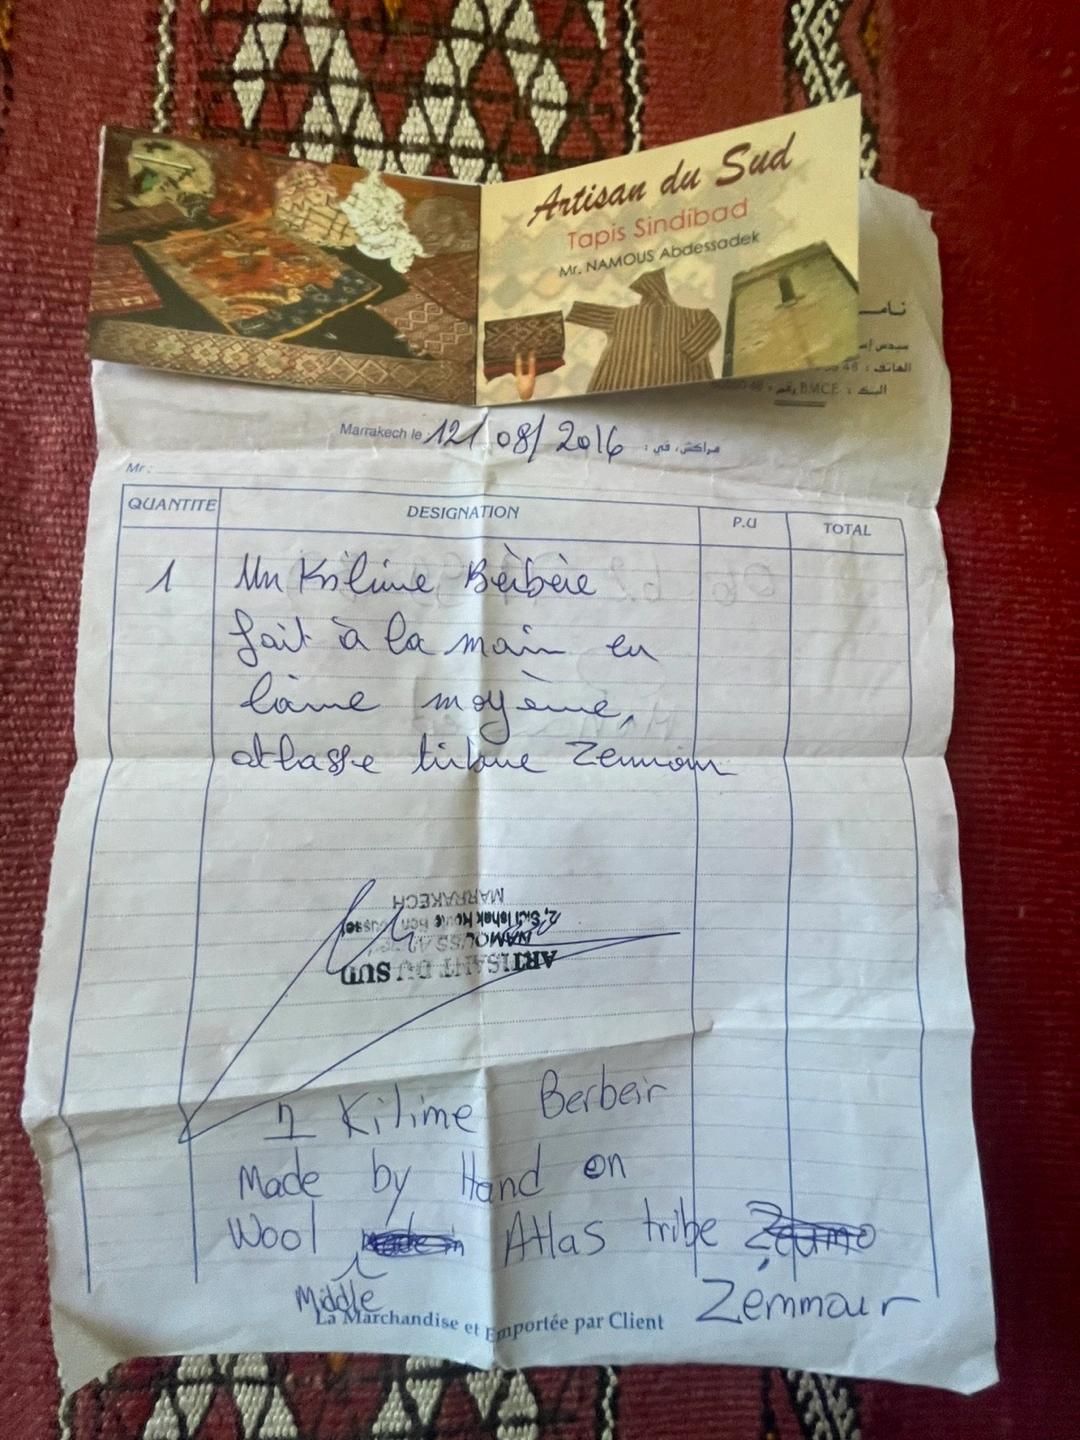 Artisan du Sud
Tapis Sindibad
Mr. NAMOUS Abdessadek
نامـ
سيدي إسـ
الهاتف :
البنك : BMCE رقم :
Marrakech le : 12/08/2016 مراكش، في :
Mr :
QUANTITE DESIGNATION P.U TOTAL
1 Un Kilime Bèrbère
fait à la main en
laine moyène,
atlasse tribue Zemmour
ARTISANT DU SUD
MARRAKECH
1 Kilime Berbeir
Made by Hand on
Wool Atlas tribe
Middle
Zémmour
La Marchandise et Emportée par Client